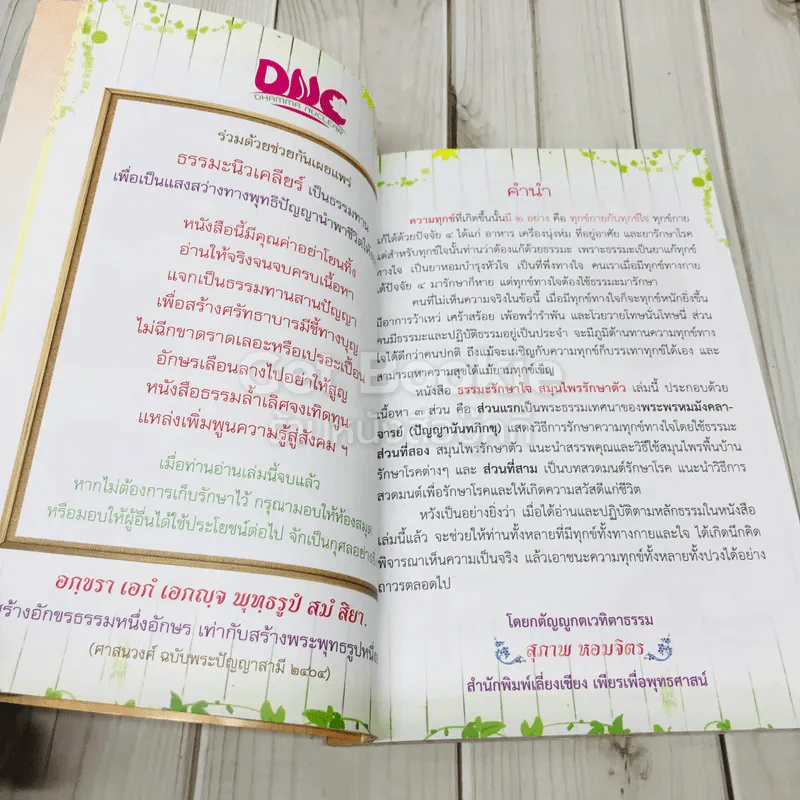 DNC
DHAMMA NUCLEAR
ร่วมด้วยช่วยกันเผยแพร่
ธรรมะนิวเคลียร์ เป็นธรรมทาน
เพื่อเป็นแสงสว่างทางพุทธิปัญญานำพาชีวิต
หนังสือนี้มีคุณค่าอย่าโยนทิ้ง
อ่านให้จริงจนจบครบเนื้อหา
แจกเป็นธรรมทานสานปัญญา
เพื่อสร้างศรัทธาบารมีชี้ทางบุญ
ไม่ฉีกขาดราดเลอะหรือเปรอะเปื้อน
อักษรเลือนลางไปอย่าให้สูญ
หนังสือธรรมล้ำเลิศจงเทิดทูน
แหล่งเพิ่มพูนความรู้สู่สังคม ฯ
เมื่อท่านอ่านเล่มนี้จบแล้ว
หากไม่ต้องการเก็บรักษาไว้ กรุณามอบให้ห้องสมุด
หรือมอบให้ผู้อื่นได้ใช้ประโยชน์ต่อไป จักเป็นกุศล
อกฺขรา เอกํ เอกญฺจ พุทฺธรูปํ สมํ สิยา.
สร้างอักขรธรรมหนึ่งอักษร เท่ากับสร้างพระพุทธรูปหนึ่ง
(ศาสนวงศ์ ฉบับพระปัญญาสามี ๒๔๐๔)
คำนำ
ความทุกข์ที่เกิดขึ้นนั้นมี ๒ อย่าง คือ ทุกข์กายกับทุกข์ใจ ทุกข์กาย
แก้ได้ด้วยปัจจัย ๔ ได้แก่ อาหาร เครื่องนุ่งห่ม ที่อยู่อาศัย และยารักษาโรค
แต่สำหรับทุกข์ใจนั้นท่านว่าต้องแก้ด้วยธรรมะ เพราะธรรมะเป็นยาแก้ทุกข์
ทางใจ เป็นยาหอมบำรุงหัวใจ เป็นที่พึ่งทางใจ คนเราเมื่อมีทุกข์ทางกาย
ใช้ปัจจัย ๔ มารักษาก็หาย แต่ทุกข์ทางใจต้องใช้ธรรมะมารักษา
คนที่ไม่เห็นความจริงในข้อนี้ เมื่อมีทุกข์ทางใจก็จะทุกข์หนักยิ่งขึ้น
มีอาการว้าเหว่ เศร้าสร้อย เพ้อพร่ำรำพัน และโวยวายโทษนั่นโทษนี่ ส่วน
คนมีธรรมะและปฏิบัติธรรมอยู่เป็นประจำ จะมีภูมิต้านทานความทุกข์ทาง
ใจได้ดีกว่าคนปกติ ถึงแม้จะเผชิญกับความทุกข์ก็บรรเทาทุกข์ได้เอง และ
สามารถหาความสุขได้แม้ยามทุกข์เข็ญ
หนังสือ ธรรมะรักษาใจ สมุนไพรรักษาตัว เล่มนี้ ประกอบด้วย
เนื้อหา ๓ ส่วน คือ ส่วนแรกเป็นพระธรรมเทศนาของพระพรหมมังคลา-
จารย์ (ปัญญานันทภิกขุ) แสดงวิธีการรักษาความทุกข์ทางใจโดยใช้ธรรมะ
ส่วนที่สอง สมุนไพรรักษาตัว แนะนำสรรพคุณและวิธีใช้สมุนไพรพื้นบ้าน
รักษาโรคต่างๆ และ ส่วนที่สาม เป็นบทสวดมนต์รักษาโรค แนะนำวิธีการ
สวดมนต์เพื่อรักษาโรคและให้เกิดความสวัสดีแก่ชีวิต
หวังเป็นอย่างยิ่งว่า เมื่อได้อ่านและปฏิบัติตามหลักธรรมในหนังสือ
เล่มนี้แล้ว จะช่วยให้ท่านทั้งหลายที่มีทุกข์ทั้งทางกายและใจ ได้เกิดนึกคิด
พิจารณาเห็นความเป็นจริง แล้วเอาชนะความทุกข์ทั้งหลายทั้งปวงได้อย่าง
ถาวรตลอดไป
โดยกตัญญูกตเวทิตาธรรม
สุภาพ หอมจิตร
สำนักพิมพ์เลี่ยงเชียง เพียรเพื่อพุทธศาสน์